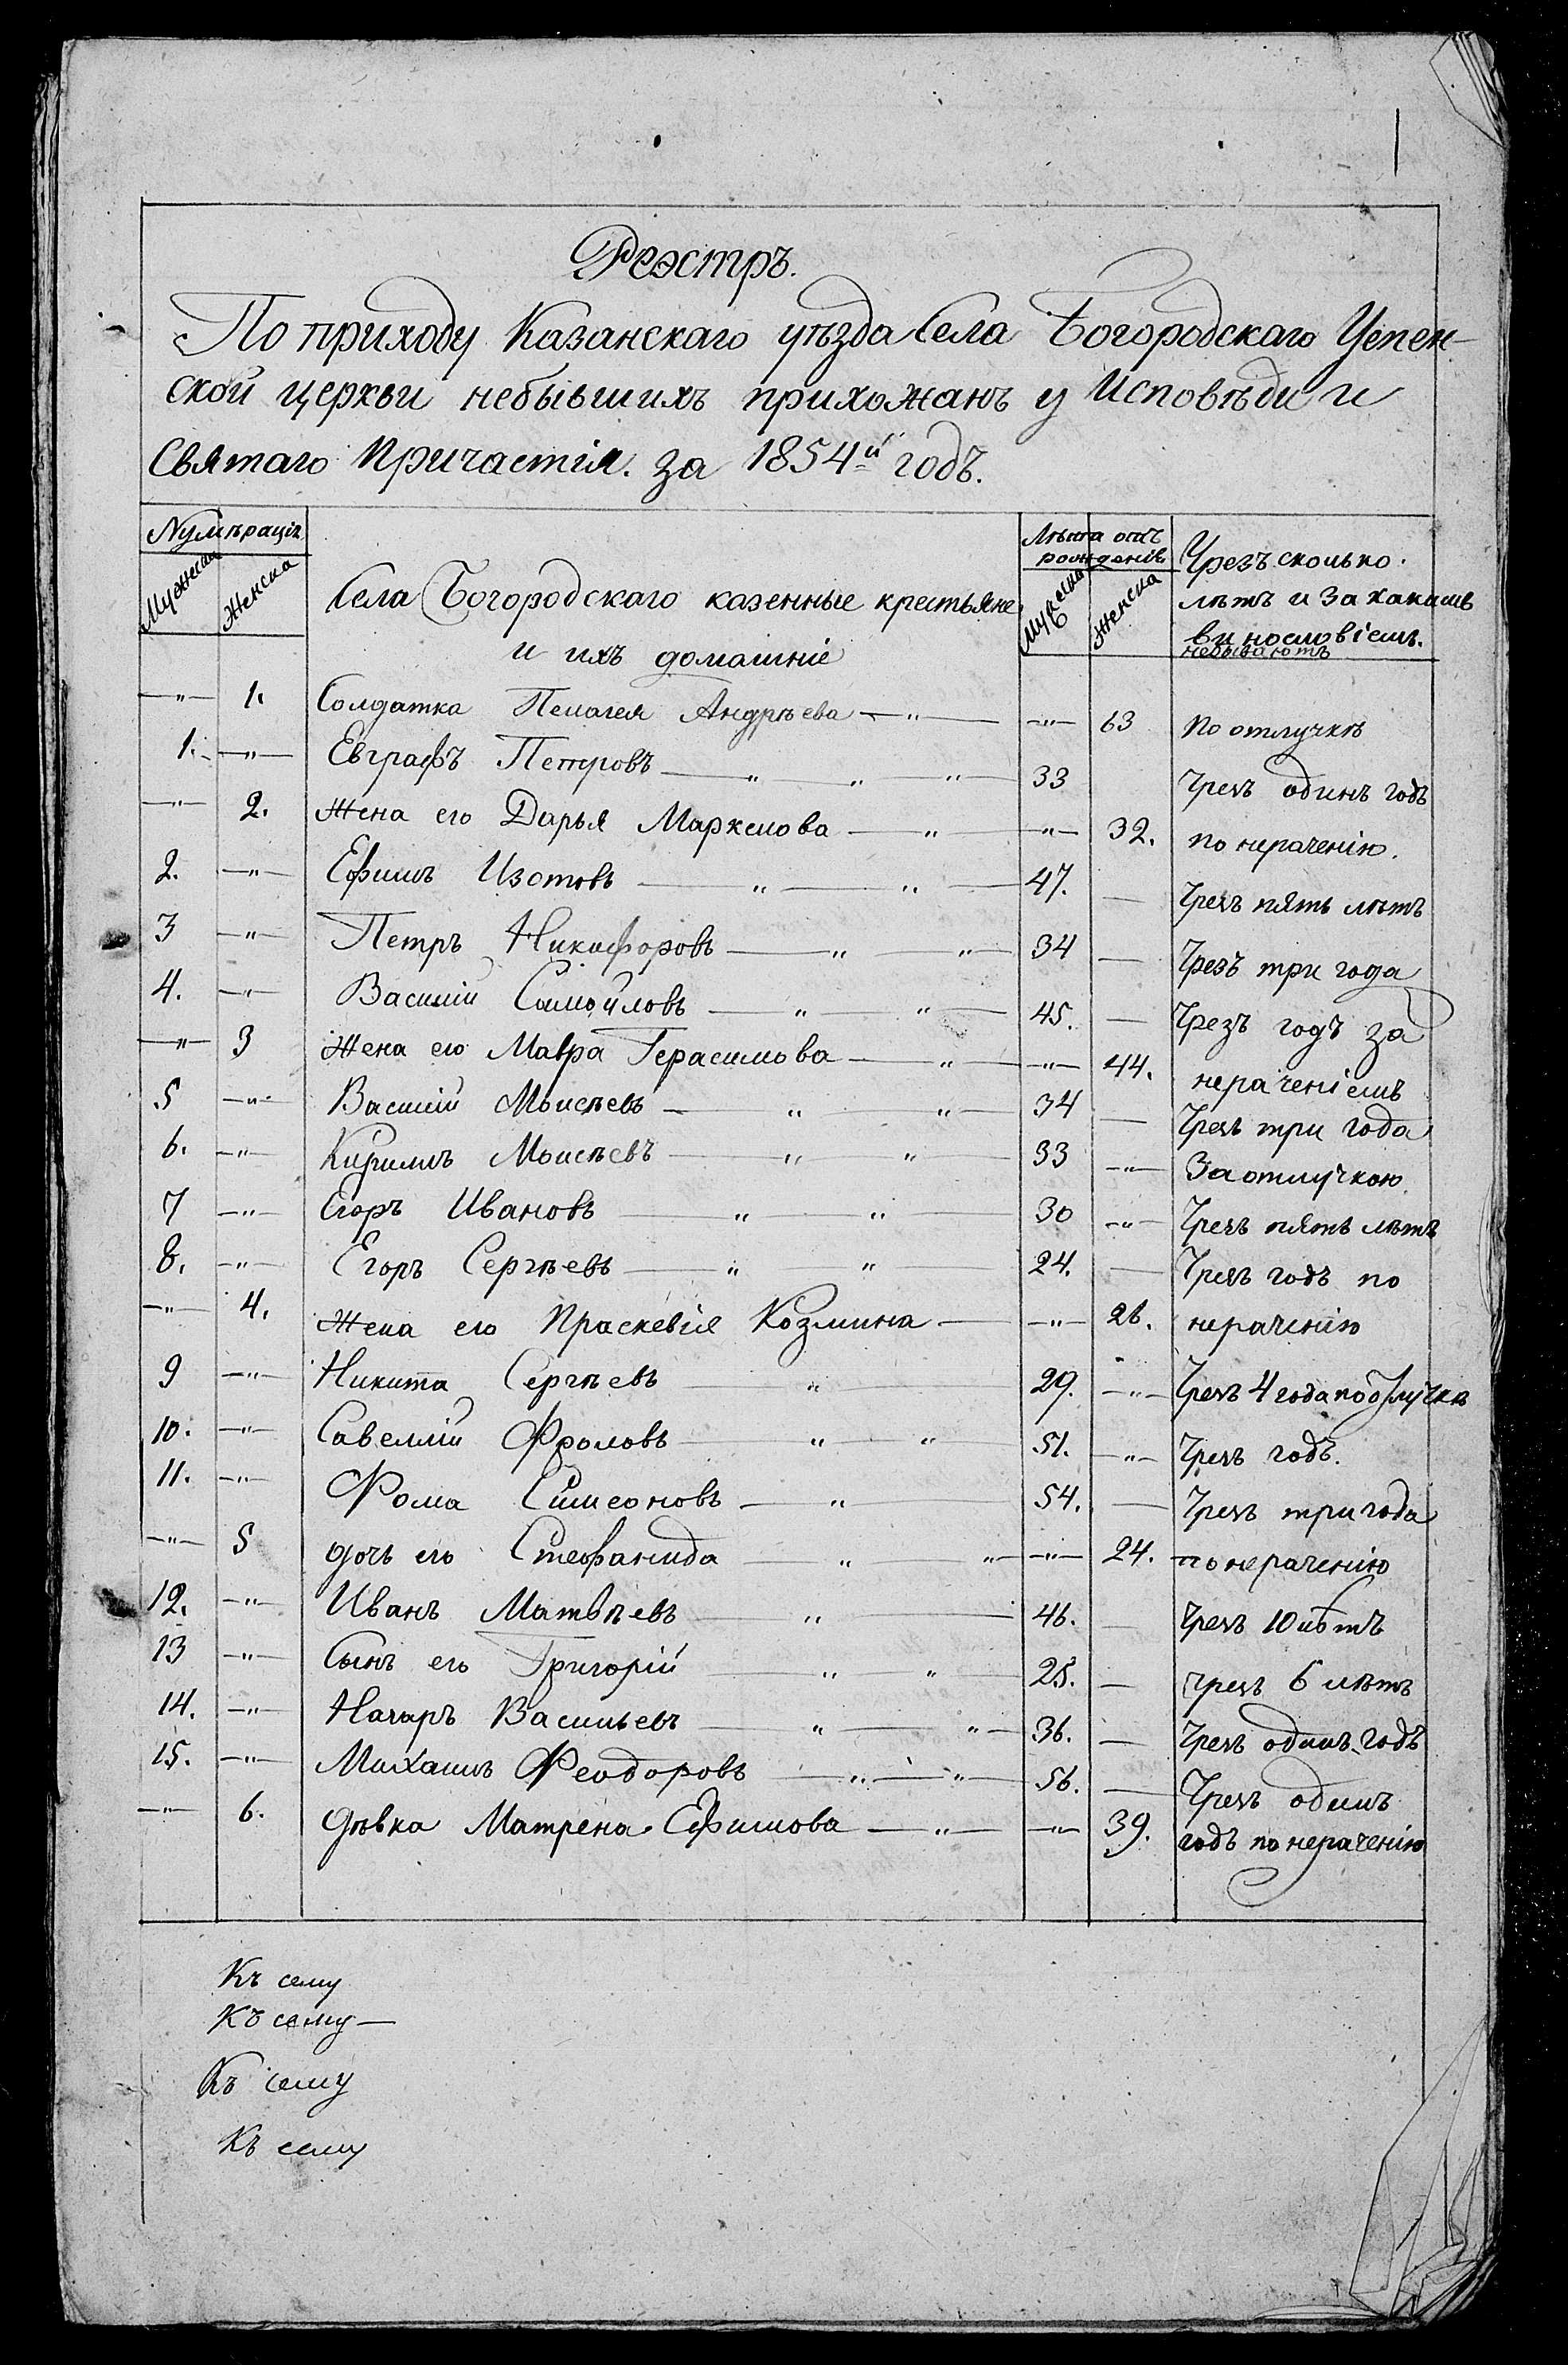 Реэстръ.
По приходу Казанскаго уѣзда Села Богородскаго Успен-
ской церкви небывшихъ прихожанъ у Исповѣди и
Святаго Причастія. за 1854й годъ.
Нумѣрація
Мужеска Женска
Села Богородскаго казенные крестьяне
и ихъ домашніе
Лѣта отъ рожденія
Мужеска Женска
Чрезъ сколько
лѣтъ и за какимъ
винословіемъ.
небываютъ
—„— 1. Солдатка Пелагея Андрѣева —„— —„— 63 По отлучкѣ
1. —„— Евграфъ Петровъ —„—„—„— 33 Чрезъ одинъ годъ
—„— 2. Жена его Дарья Маркелова —„— —„— 32. по нераченію.
2. —„— Ефимъ Изотовъ —„—„— 47. — Чрезъ пять лѣтъ
3 —„— Петръ Никифоровъ —„—„— 34 — Чрезъ три года
4. —„— Василій Самойловъ —„—„— 45. — Чрезъ годъ за
—„— 3 Жена его Мавра Герасимова —„— —„— 44. нераченіемъ
5 —„— Василій Моисѣевъ —„—„— 34 — Чрезъ три года
6. —„— Кирилъ Моисѣевъ —„—„— 33 —„— За отлучкою
7 —„— Егоръ Ивановъ —„—„— 30 —„— Чрезъ пять лѣтъ
8. —„— Егоръ Сергѣевъ —„—„— 24. — Чрезъ годъ по
—„— 4. Жена его Праскевія Козмина — —„— 26. нераченію
9 —„— Никита Сергѣевъ —„— 29. —„— Чрезъ 4 года по отлучкѣ
10. —„— Савелій Фроловъ —„—„— 51. —„— Чрезъ годъ.
11. —„— Фома Симеоновъ —„— 54. — Чрезъ три года
—„— 5 дочь его Стефанида —„—„— —„— 24. по нераченію
12. —„— Иванъ Матвѣевъ —„— 46. — Чрезъ 10 лѣтъ
13 —„— Сынъ его Григорій —„—„— 25. — чрезъ 6 лѣтъ
14. —„— Назаръ Васильевъ —„—„— 36. — Чрезъ одинъ годъ
15. —„— Михаилъ Феодоровъ —„—„— 56. — Чрезъ одинъ
—„— 6. дѣвка Матрена Ефимова —„— —„— 39. годъ по нераченію
Къ сему
Къ сему —
Къ сему
Къ сему